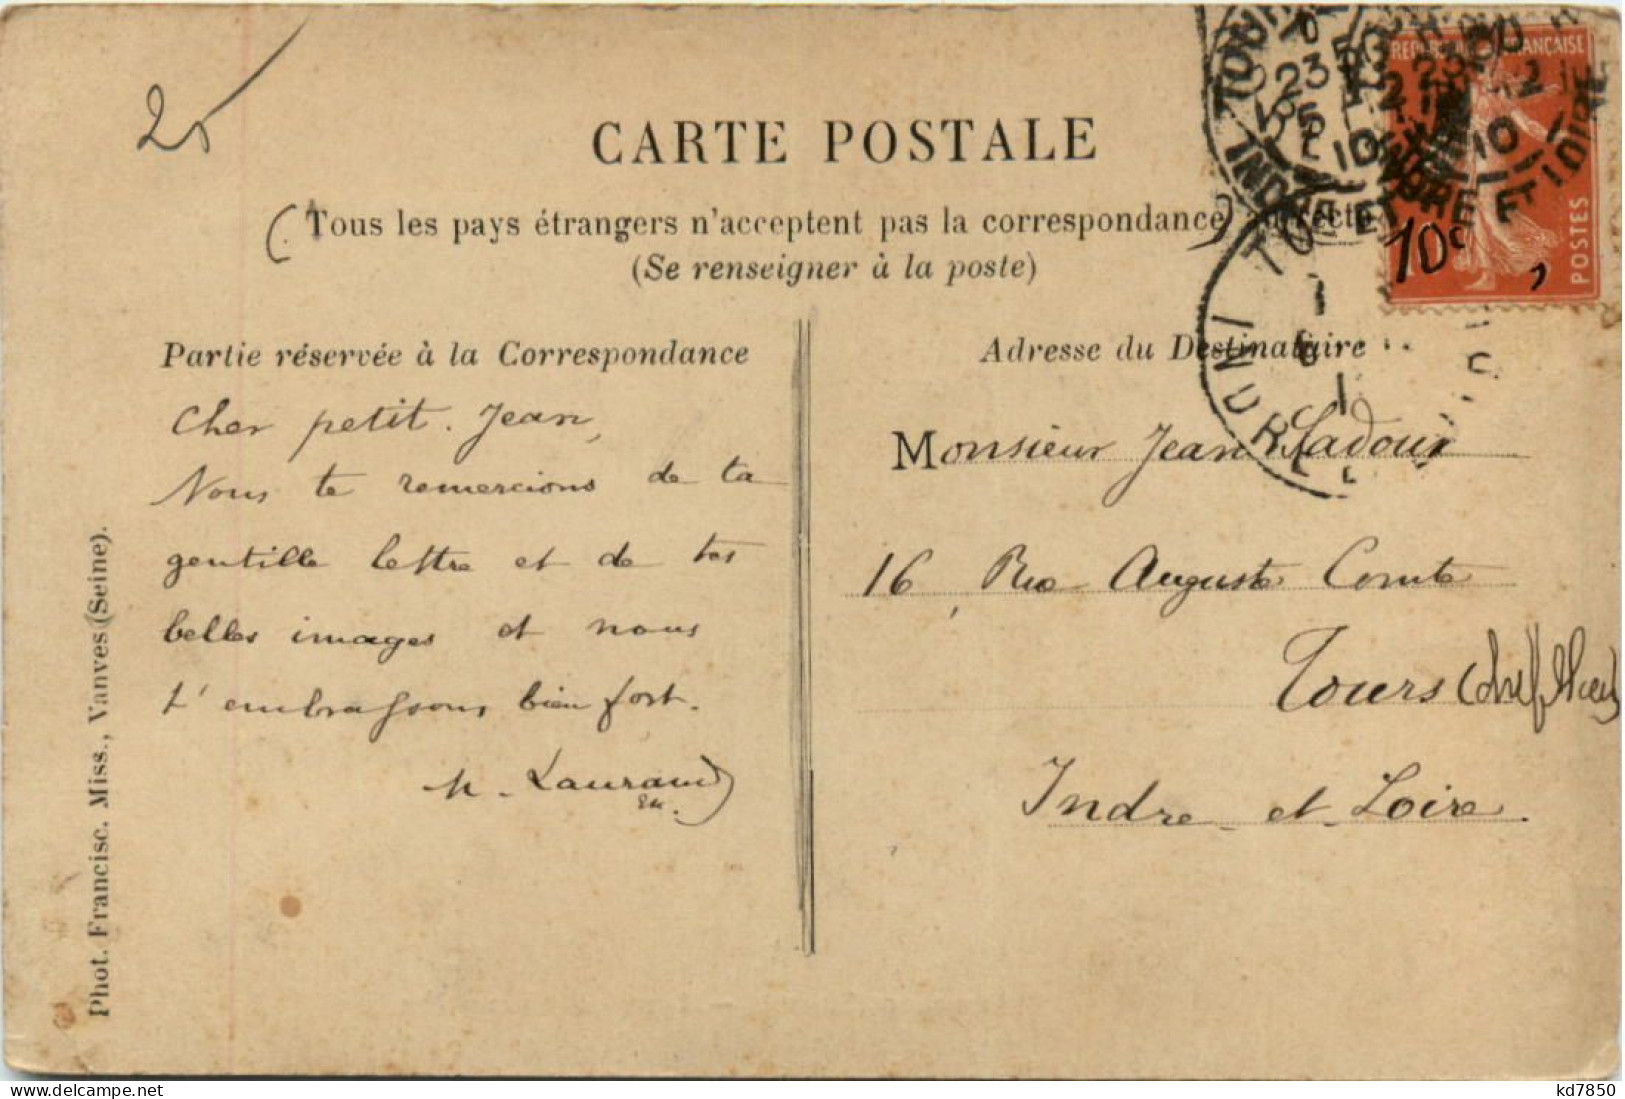 25
CARTE POSTALE
(Tous les pays étrangers n'acceptent pas la correspondance) au recto
(Se renseigner à la poste)
REPUBLIQUE FRANÇAISE
POSTES
10c
TOURS
INDRE ET LOIRE
Partie réservée à la Correspondance
Cher petit Jean,
Nous te remercions de ta
gentille lettre et de tes
belles images et nous
t'embrassons bien fort.
Phot. Francisc. Miss., Vanves (Seine).
Adresse du Destinataire
Monsieur Jean Ladour
16, Rue Auguste Comte
Tours
Indre et Loire.
www.delcampe.net
kd7850